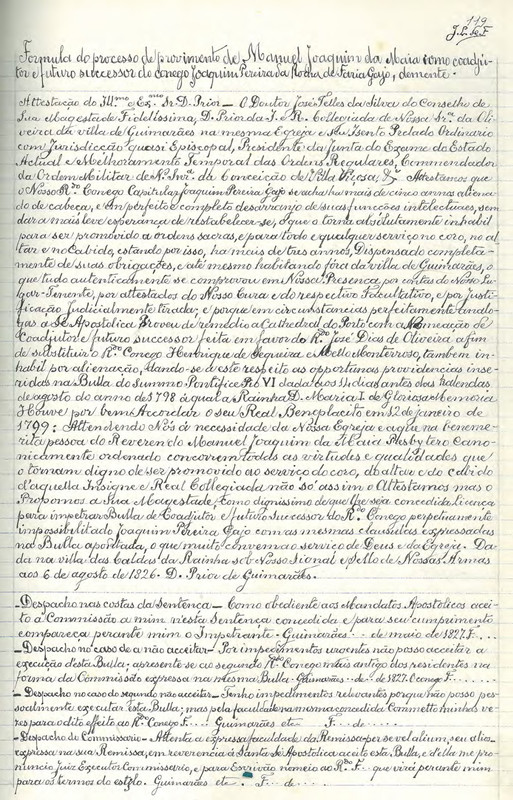 119
J. L. de F.
Formula do processo de provimento de Manuel Joaquim da Maia como coadju-
tor e futuro successor do Conego Joaquim Pereira da Rocha de Faria Gajo, demente.
Attestação do Ill.mo e Ex.mo Sr. D. Prior — O Doutor José Telles da Silva do Conselho de
Sua Magestade Fidelissima, D. Prior da I. e R. Collegiada de Nossa Sr.ª da Oli-
veira da villa de Guimarães na mesma Egreja e seu Isento Prelado Ordinario
com Jurisdicção quasi Episcopal, Presidente da Junta do Exame do Estado
Actual e Melhoramento Temporal das Ordens Regulares, Commendador
da Ordem Militar de N. Sr.ª da Conceição de Villa Viçosa, &.ª Attestamos que
o Nosso R.do Conego Capitular Joaquim Pereira Gajo se acha ha mais de cinco annos aliena-
do de cabeça, e em perfeito e completo desarranjo de suas funcções intelectuaes, sem
dar a mais leve esperança de restabelecer-se, o que o torna absolutamente inhabil
para ser promovido a ordens sacras, e para todo e qualquer serviço no coro, no al-
tar e no Cabido, estando por isso, ha mais de tres annos, Dispensado completa-
mente de suas obrigações, e até mesmo habitando fóra da villa de Guimarães, o
que tudo autenticamente se comprovou em Nossa Presença por contas do Nosso Lu-
gar-Tenente, por attestados do Nosso Cura e do respectivo Facultativo, e por justi-
ficação Judicialmente tirada; e porque em circunstancias perfeitamente analo-
gas a Sé Apostolica Proveu de remedio a Cathedral do Porto com a Nomeação de
Coadjutor e futuro successor feita em favor do R.do José Dias de Oliveira a fim
de substituir o R.do Conego Henrique de Sequeira e Mello Monterroso, tambem in-
habil por alienação, dando-se a este respeito as opportunas providencias inse-
ridas na Bulla do Summo Pontifice Pio VI dada aos 14 dias antes das kalendas
de agosto do anno de 1798 a qual a Rainha D. Maria I de Gloriosa Memoria
Houve por bem Acordar o seu Real Beneplacito em 12 de janeiro de
1799: Attendendo Nós á necessidade da Nossa Egreja e a q na beneme-
rita pessoa do Reverendo Manuel Joaquim da Maia Presbytero Cano-
nicamente ordenado concorrem todas as virtudes e qualidades que
o tornam digno de ser promovido ao serviço do coro, do altar e do cabido
d'aquella Insigne e Real Collegiada não só assim o Attestamos mas o
Propomos a Sua Magestade, como dignissimo de que lhe seja concedida Licença
para impetrar Bulla de Coadjutor e futuro Successor do R.do Conego perpetuamente
impossibilitado Joaquim Pereira Gajo com as mesmas clausulas expressadas
na Bulla apontada, o que muito convem ao serviço de Deus e da Egreja. Da-
da na villa das Caldas da Rainha sob Nosso Signal e Sello de Nossas Armas
aos 6 de agosto de 1826. D. Prior de Guimarães.
Despacho nas costas da Sentença — Como obediente aos Mandatos Apostolicos acei-
to a Commissão a mim n'esta Sentença concedida e para seu cumprimento
compareça perante mim o Impetrante. Guimarães ... de maio de 1827. F....
Despacho no caso de a não acceitar — Por impedimentos urgentes não posso acceitar a
execução desta Bulla: apresente-se ao segundo R.do Conego mais antigo dos residentes na
forma da Commissão expressa na mesma Bulla. Guimarães ... de ... de 1827. O conego F....
Despacho no caso do segundo não acceitar — Tenho impedimentos relevantes porque não posso pes-
soalmente executar esta Bulla; mas pela faculdade na mesma concedida Commetto minhas ve-
res para o dito effeito ao R.do Conego F.... Guimarães etc F... de ...
Despacho do Commissario — Attenta a expressa faculdade da Remissa
expressa na sua Remissa, em reverencia á Santa Sé Apostolica acceito esta Bulla, e d'ella me pro-
nuncio Juiz Executor Commissario, e para Escrivão nomeio ao R.do F... que virá perante mim
para os termos do estylo. Guimarães etc. F... de ...